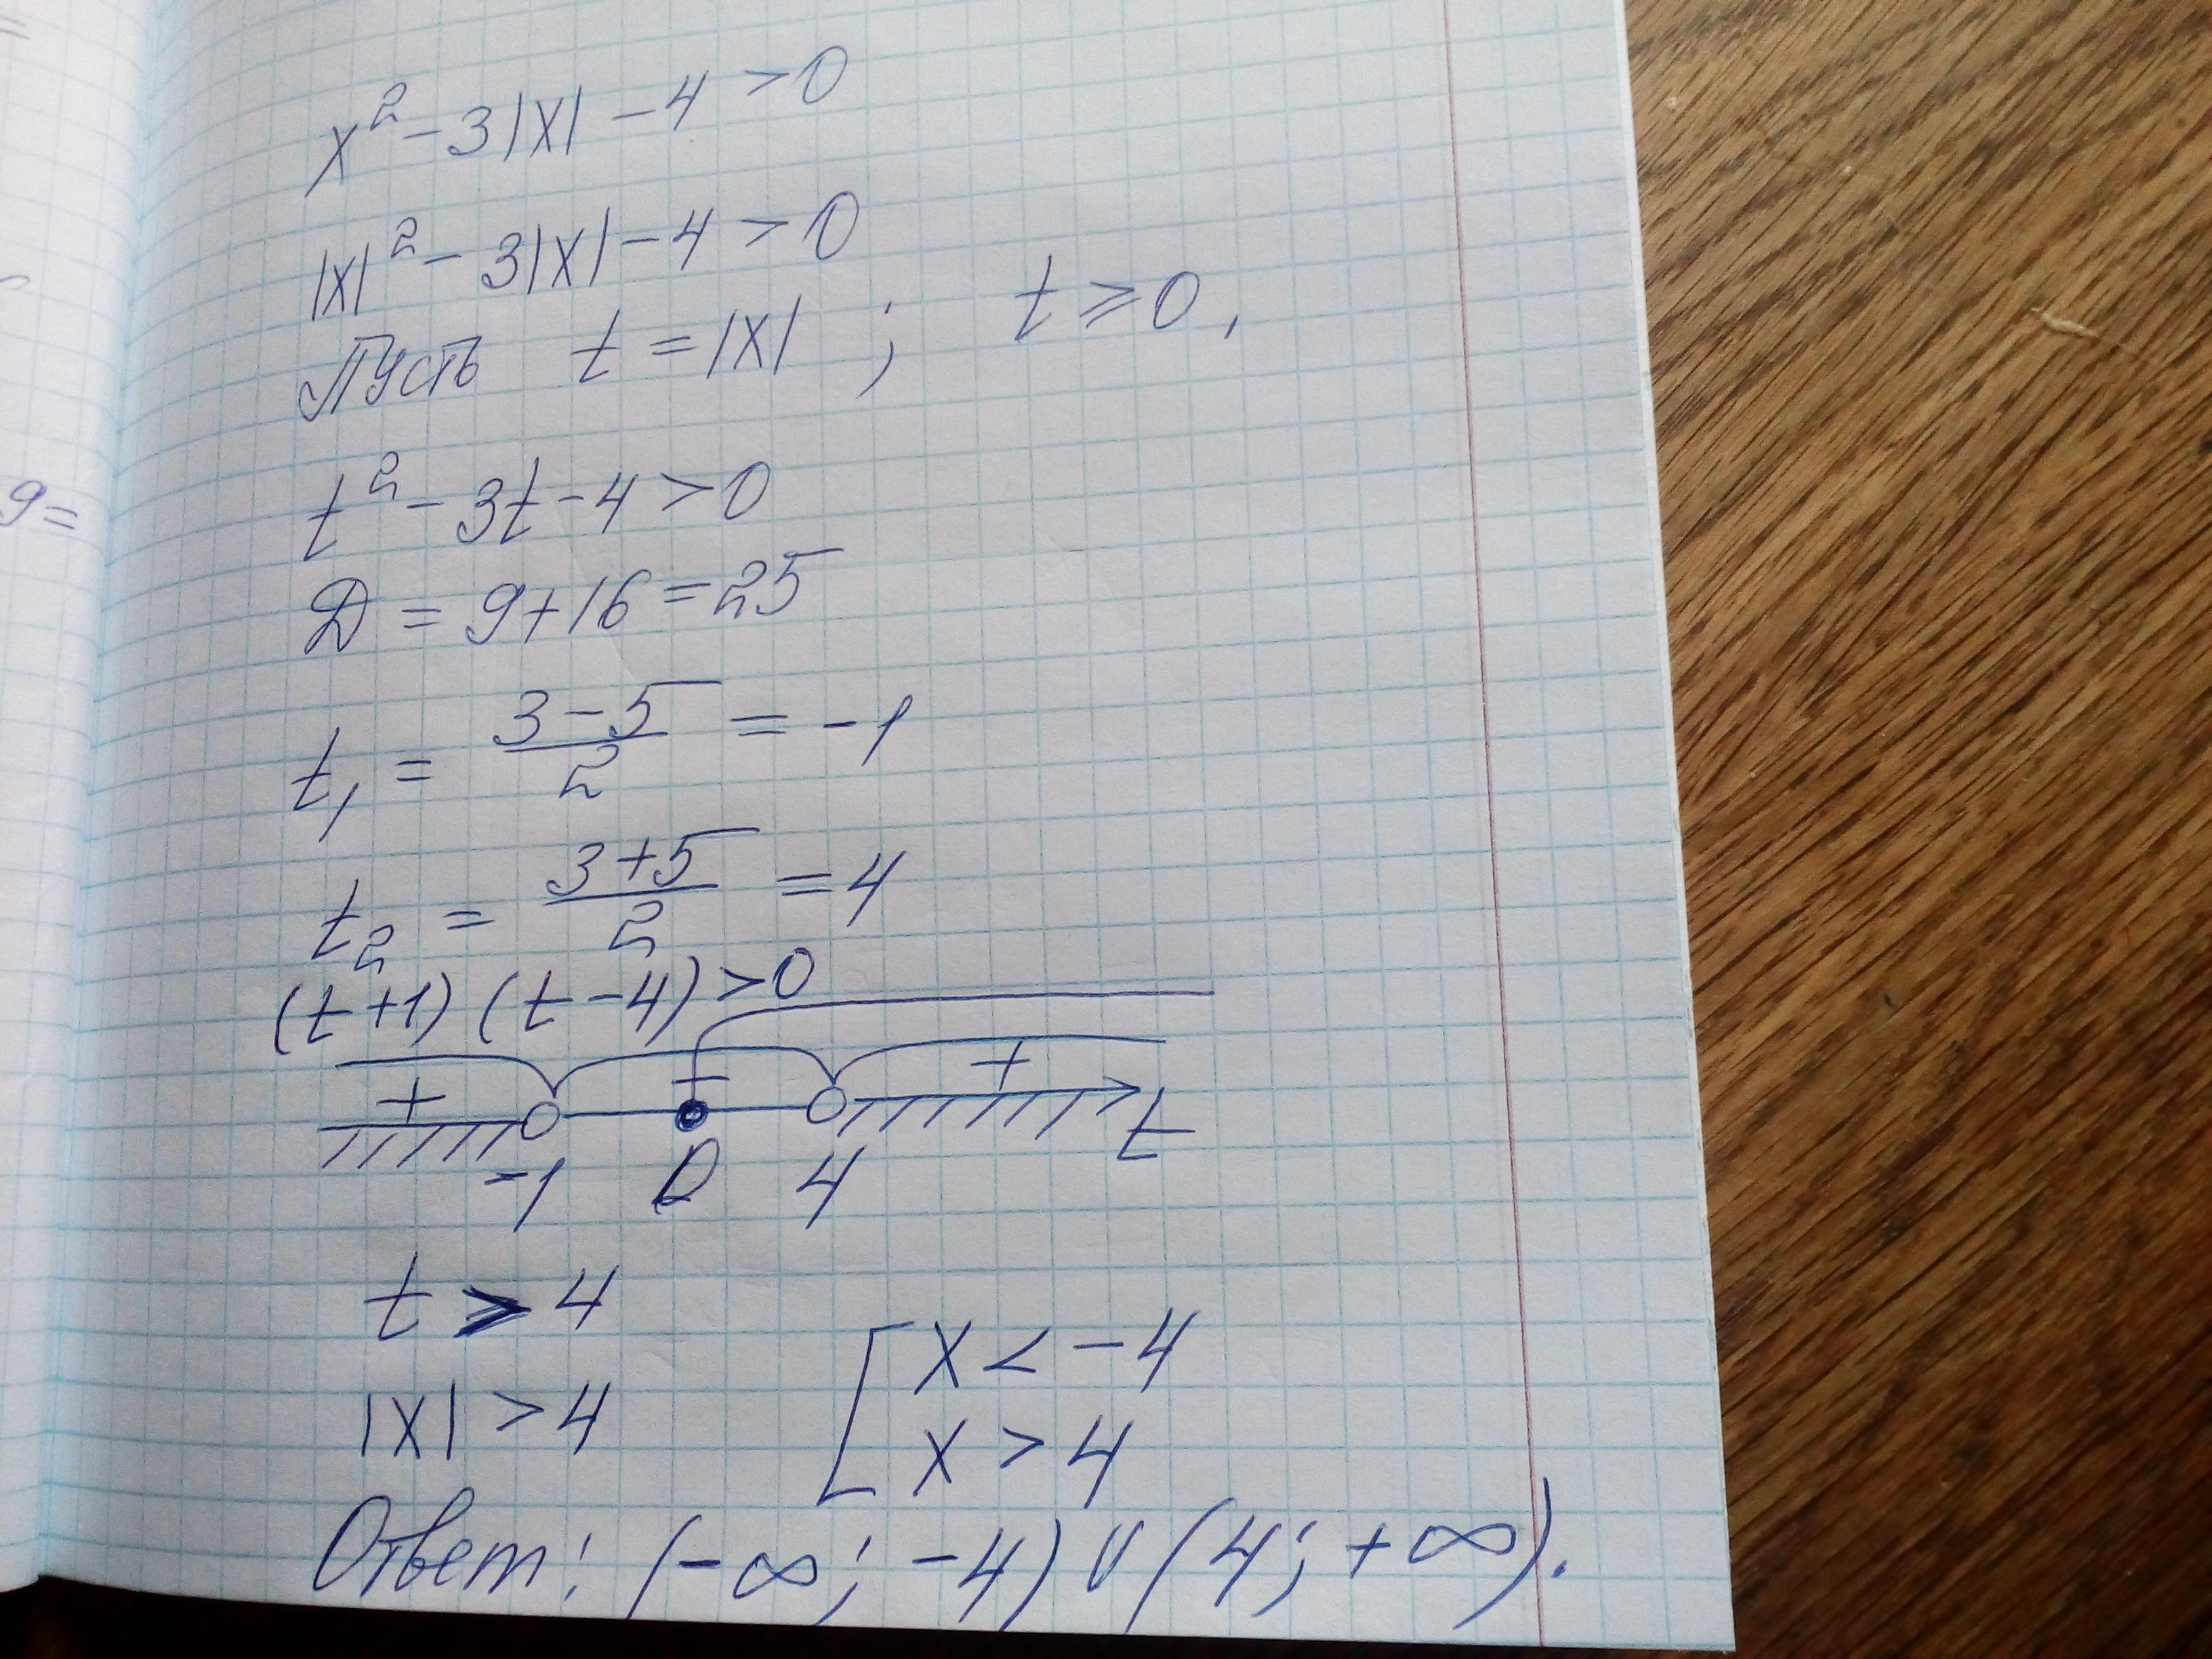 x² - 3|x| - 4 > 0
|x|² - 3|x| - 4 > 0
Пусть t = |x| ; t ⩾ 0,
t² - 3t - 4 > 0
9=
D = 9 + 16 = 25
t₁ = (3-5)/2 = -1
t₂ = (3+5)/2 = 4
(t+1) (t-4) > 0
+ - +
-1 0 4 t
t > 4
|x| > 4 [ x < -4
x > 4
Ответ: (-∞; -4) ∪ (4; +∞).